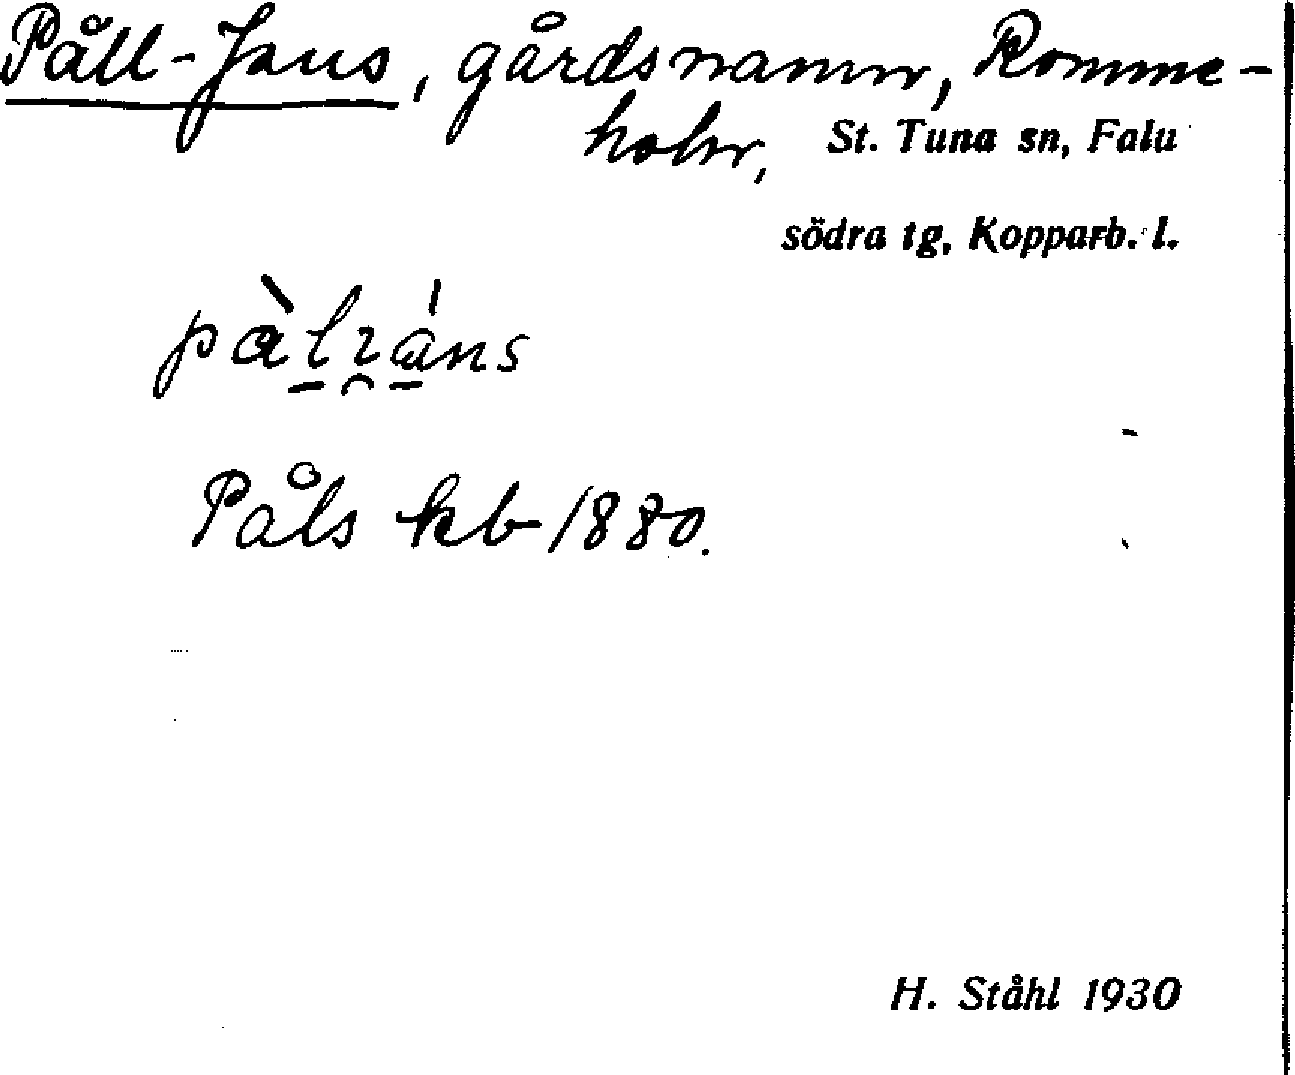 Påll-Jans, gårdsnamn, Romme-
holn, St. Tuna sn, Falu
södra tg, Kopparb. l.
Påls kb 1880.
H. Ståhl 1930